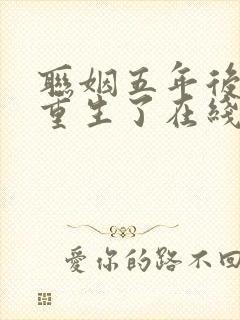 聯姻五年後
重生了在綫
愛你的路不回